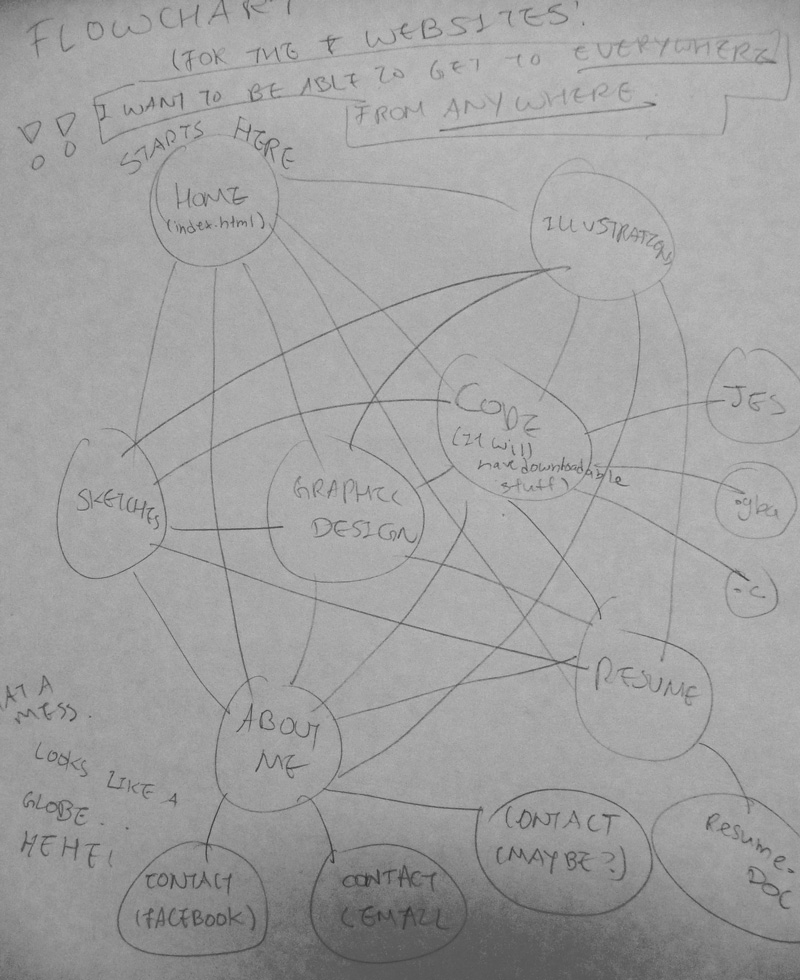 FLOWCHART
(FOR THE WEBSITES!
I WANT TO BE ABLE TO GET TO EVERYWHERE
FROM ANYWHERE
STARTS HERE
HOME
(index.html)
ILLUSTRATIONS
CODE
(It will
have downloadable
stuff)
JES
.gba
.c
SKETCHES
GRAPHIC
DESIGN
RESUME
ABOUT
ME
AT A
MESS.
LOOKS LIKE A
GLOBE..
HEHE!
CONTACT
(FACEBOOK)
CONTACT
(EMAIL
CONTACT
(MAYBE?)
Resume.
DOC